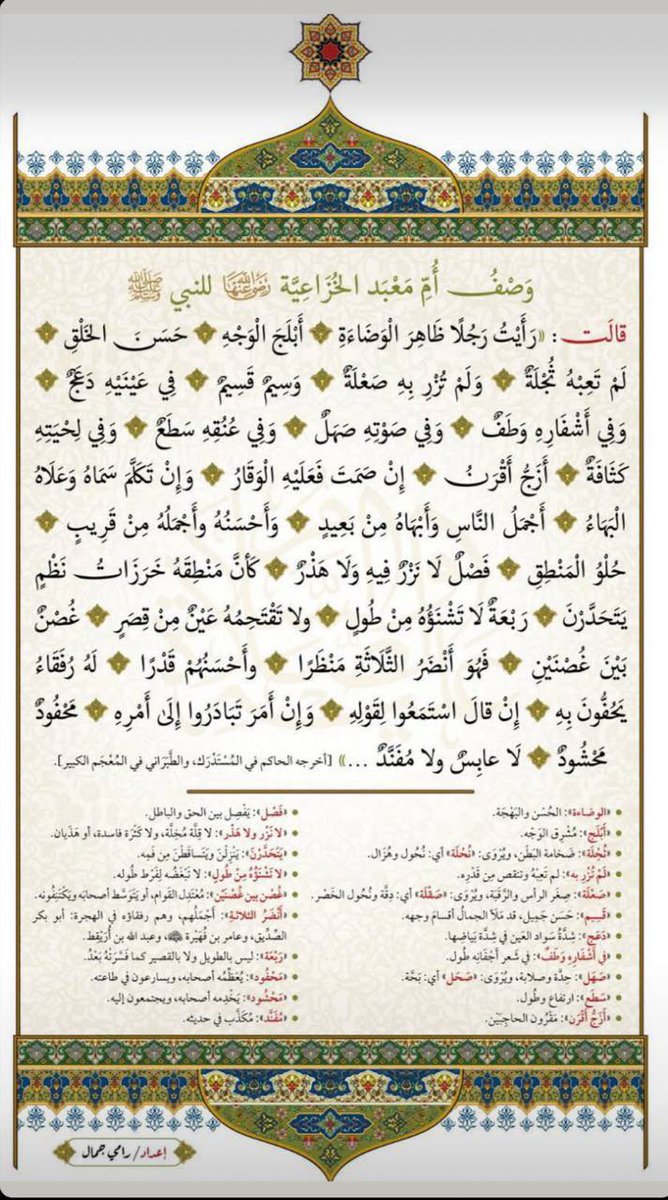 وَصْفُ أُمِّ مَعْبَد الخُزَاعِيَّة رَضِيَ اللهُ عَنْهَا للنبي ﷺ
قالَت: «رَأَيْتُ رَجُلًا ظَاهِرَ الْوَضَاءَةِ أَبْلَجَ الْوَجْهِ حَسَنَ الخَلْقِ
لَمْ تَعِبْهُ ثُجْلَةٌ وَلَمْ تُزْرِ بِهِ صَعْلَةٌ وَسِيمٌ قَسِيمٌ فِي عَيْنَيْهِ دَعَجٌ
وَفِي أَشْفَارِهِ وَطَفٌ وَفِي صَوْتِهِ صَهَلٌ وَفِي عُنُقِهِ سَطَعٌ وَفِي لِحْيَتِهِ
كَثَافَةٌ أَزَجُّ أَقْرَنُ إِنْ صَمَتَ فَعَلَيْهِ الْوَقَارُ وَإِنْ تَكَلَّمَ سَمَاهُ وَعَلَاهُ
الْبَهَاءُ أَجْمَلُ النَّاسِ وَأَبْهَاهُ مِنْ بَعِيدٍ وَأَحْسَنُهُ وأَجْمَلُهُ مِنْ قَرِيبٍ
حُلْوُ الْمَنْطِقِ فَصْلٌ لَا نَزْرٌ فِيهِ وَلَا هَذْرٌ كَأنَّ مَنْطِقَهُ خَرَزَاتُ نَظْمٍ
يَتَحَدَّرْنَ رَبْعَةٌ لَا تَشْنَؤُهُ مِنْ طُولٍ ولا تَقْتَحِمُهُ عَيْنٌ مِنْ قِصَرٍ غُصْنٌ
بَيْنَ غُصْنَيْنِ فَهُوَ أَنْضَرُ الثَّلَاثَةِ مَنْظَرًا وأَحْسَنُهُمْ قَدْرًا لَهُ رُفَقَاءُ
يَحُفُّونَ بِهِ إِنْ قالَ اسْتَمَعُوا لِقَوْلِهِ وَإِنْ أَمَرَ تَبَادَرُوا إِلَى أَمْرِهِ مَحْفُودٌ
مَحْشُودٌ لَا عابِسٌ ولا مُفَنَّدٌ ...» [أخرجه الحاكم في المُسْتَدْرَك، والطَّبَرَاني في المُعْجَم الكبير].
«الوضاءة»: الحُسْن والبَهْجَة.
«أَبْلَج»: مُشْرِق الوَجْه.
«ثُجْلَة»: ضَخامة البَطْن، ويُرْوَى: «نُحْلَة» أي: نُحُول وهُزَال.
«لَمْ تُزْرِ به»: لم تَعِبْهُ وتنقص مِن قَدْرِه.
«صَعْلَة»: صِغَر الرأس والرَّقَبَة، ويُرْوَى: «صَقْلَة» أي: دِقَّة ونُحُول الخَصْر.
«قَسِيم»: حَسَن جَمِيل، قد مَلَأ الجمالُ أقسامَ وجهه.
«دَعَج»: شِدَّةُ سَواد العَين في شِدَّة بَياضِها.
«في أَشْفَارِه وَطَفٌ»: في شَعر أَجْفَانِه طُول.
«صَهَل»: حِدَّة وصلابة، ويُرْوَى: «صَحَل» أي: بَحَّة.
«سَطَع»: ارتفاع وطُول.
«أَزَجُّ أَقْرَن»: مَقْرُون الحاجِبَيْن.
«فَصْل»: يَفْصِل بين الحق والباطل.
«لا نَزْر ولا هَذْر»: لا قِلَّة مُخِلَّة، ولا كَثْرَة فاسدة، أو هَذَيان.
«يَتَحَدَّرْنَ»: يَنْزِلْنَ ويَتَساقَطْنَ مِن فَمِه.
«لا تَشْنَؤُهُ مِنْ طُولٍ»: لا تَبْغَضُه لِفَرْط طُوله.
«غُصْن بين غُصْنَيْن»: مُعْتَدِل القوام، أو يَتَوَسَّط أصحابَه ويَكْتَنِفُونه.
«أنْضَرُ الثلاثةِ»: أَجْمَلُهم، وهم رفقاؤه في الهجرة: أبو بكر
الصِّدِّيق، وعامر بن فُهَيْرة، وعبد الله بن أُرَيْقِط.
«رَبْعَة»: ليس بالطويل ولا بالقصير كما فَسَّرَتْهُ بَعْدُ.
«مَحْفُود»: يُعَظِّمُه أصحابه، ويسارعون في طاعته.
«مَحْشُود»: يَخْدِمه أصحابه، ويجتمعون إليه.
«مُفَنَّد»: مُكَذَّب في حديثه.
إعداد/ رامي جمال